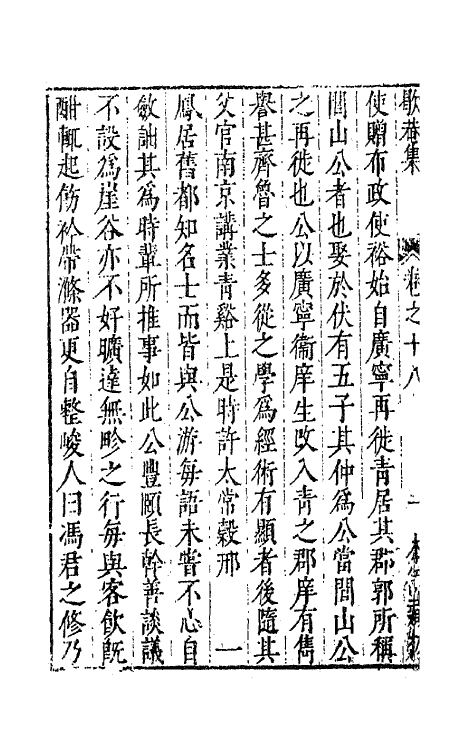 歇菴集 卷之十八 一
使贈布政使裕始自廣寧再徙青居其郡郭所稱
閭山公者也娶於伏有五子其仲為公當閭山公
之再徙也公以廣寧衞庠生改入青之郡庠有雋
譽甚齊魯之士多從之學為經術有顯者後隨其
父官南京講業青谿上是時許太常穀邢一
鳳居舊都知名士而皆與公游每語未嘗不心自
斂詘其為時輩所推事如此公豐頤長幹善談議
不設為崖谷亦不好曠達無畛之行每與客飲既
酣輒起飭衿帶滌器更自整峻人曰馮君之修乃